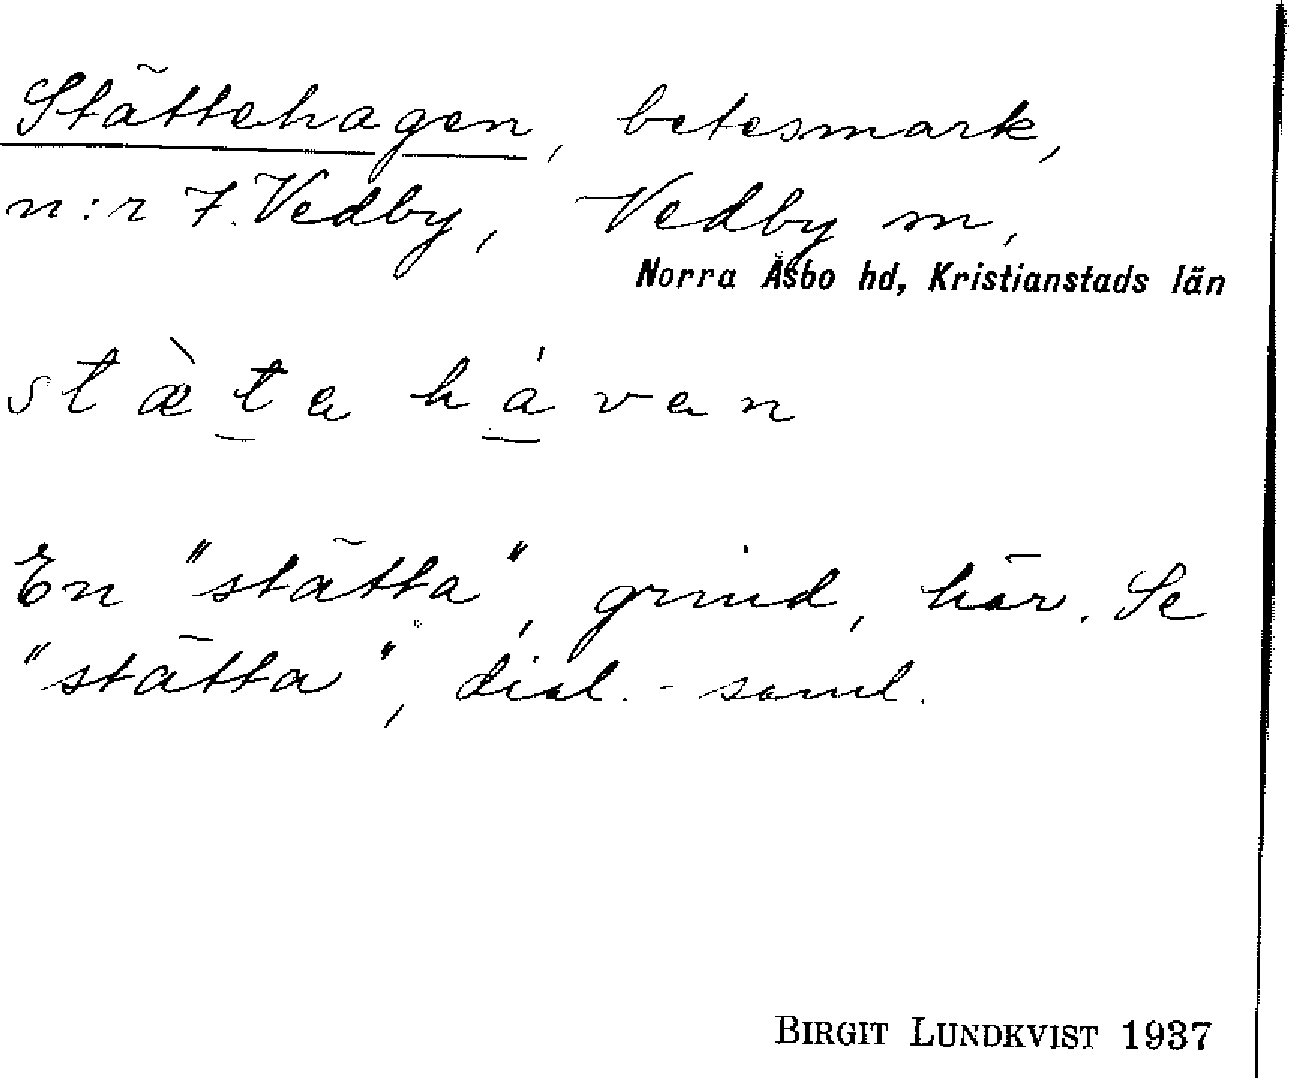 Stättehagen, betesmark,
n:r 7. Vedby, Vedby sn,
Norra Åsbo hd, Kristianstads län
stæ̀ta hávan
En "stätta", grind, här. Se
"stätta", dial.-saml.
BIRGIT LUNDKVIST 1937